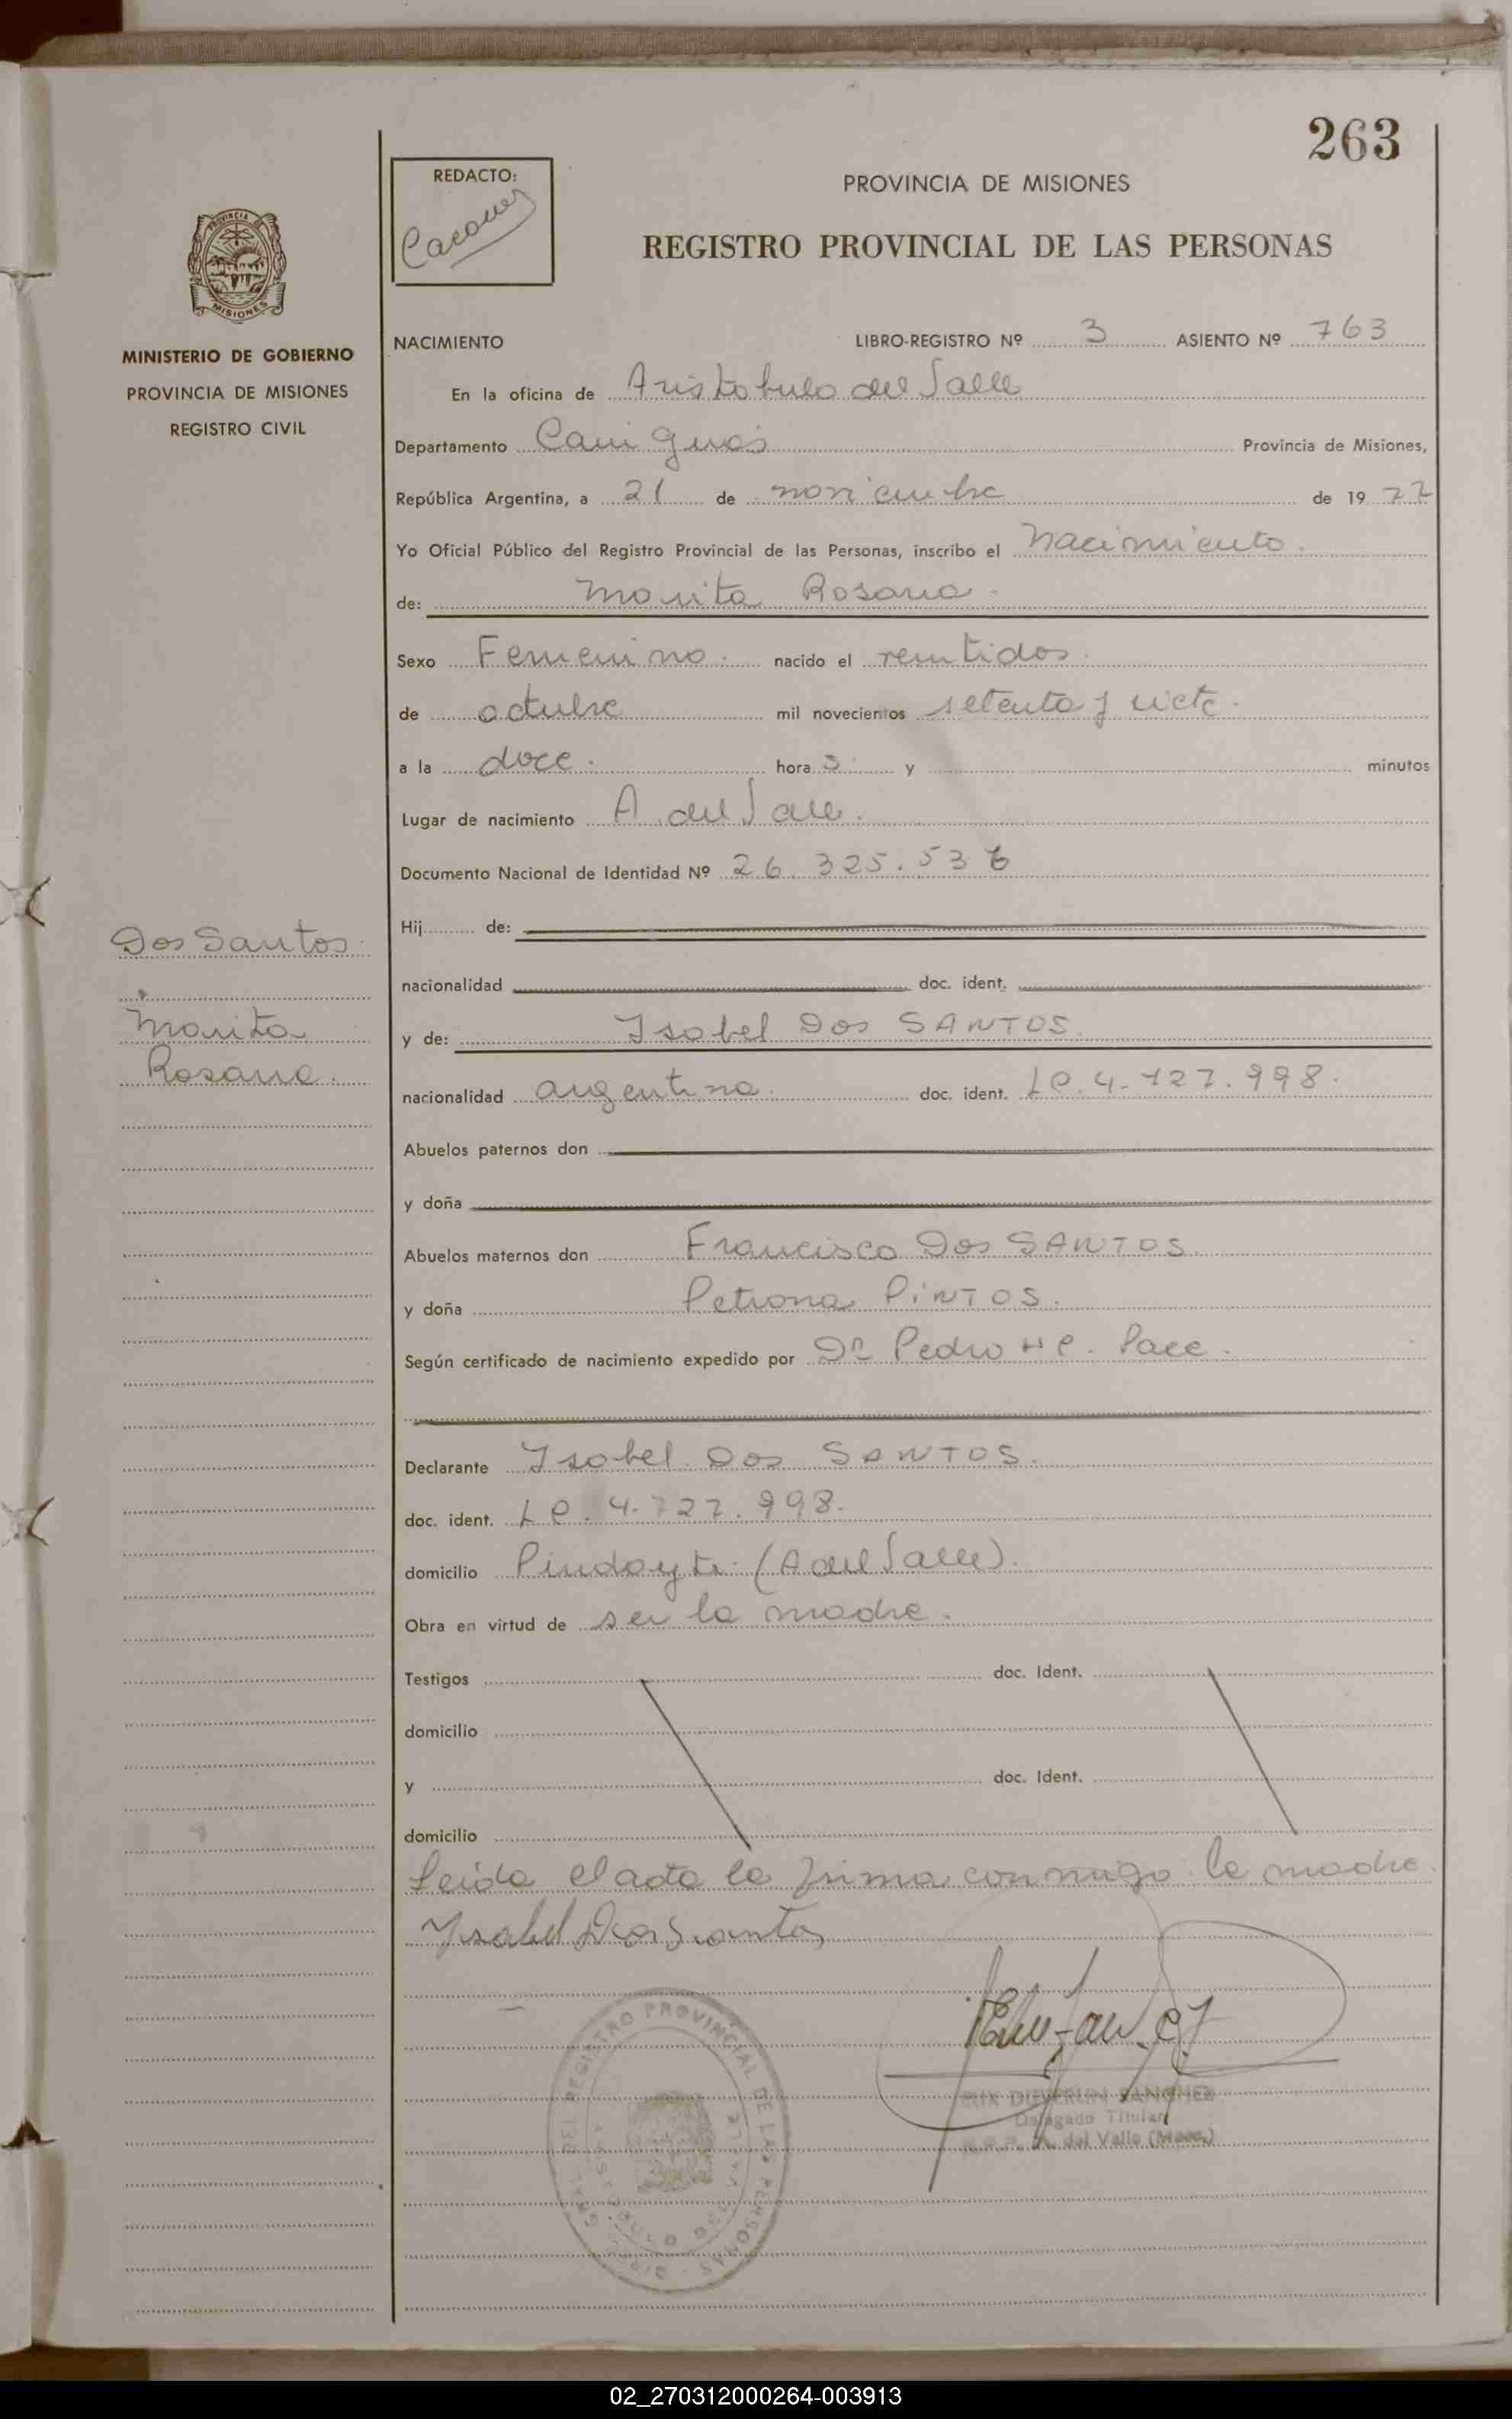 263
REDACTO:
PROVINCIA DE MISIONES
REGISTRO PROVINCIAL DE LAS PERSONAS
MINISTERIO DE GOBIERNO
PROVINCIA DE MISIONES
REGISTRO CIVIL
NACIMIENTO LIBRO-REGISTRO Nº 3 ASIENTO Nº 763
En la oficina de Aristobulo del Valle
Departamento Cainguás Provincia de Misiones,
República Argentina, a 21 de noviembre de 19 77
Yo Oficial Público del Registro Provincial de las Personas, inscribo el Nacimiento.
de: Marita Rosana.
Sexo Femenino. nacido el veintidos.
de octubre mil novecientos setenta y siete.
a la doce. hora s y minutos
Lugar de nacimiento A. del Valle.
Documento Nacional de Identidad Nº 26.325.536
Hij de:
nacionalidad doc. ident.
Dos Santos.
Marita
Rosana.
y de: Isabel Dos SANTOS.
nacionalidad argentina. doc. ident. LC. 4.727.998.
Abuelos paternos don
y doña
Abuelos maternos don Francisco Dos SANTOS.
y doña Petrona PiNTOS.
Según certificado de nacimiento expedido por Dr Pedro H C. Pace.
Declarante Isabel Dos SANTOS.
doc. ident. LC. 4.727.998.
domicilio Pindayti (A del Valle).
Obra en virtud de ser la madre.
Testigos doc. Ident.
domicilio
y doc. Ident.
domicilio
Leida el acta la firma conmigo la madre.
Ysabel Dos Santos
REGISTRO PROVINCIAL DE LAS PERSONAS
SANCHEZ
Delegado Titular
A. del Valle (Mnes.)
02_270312000264-003913